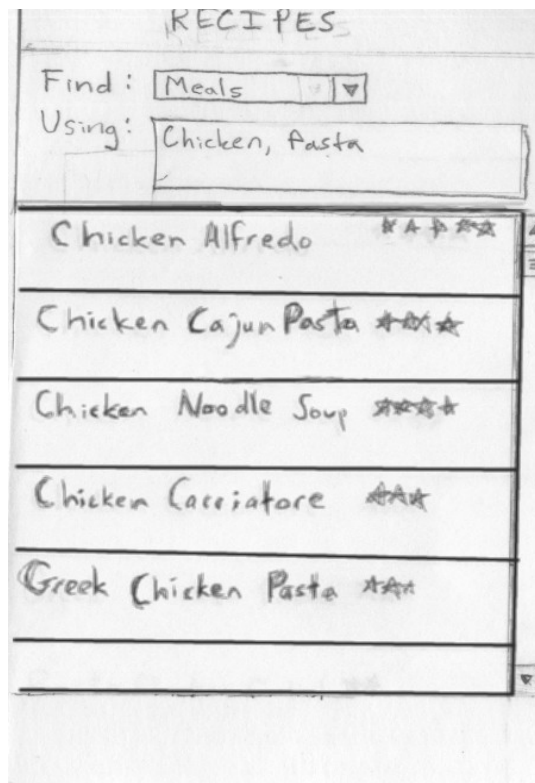 RECIPES
Find: Meals
Using: Chicken, Pasta
Chicken Alfredo
Chicken Cajun Pasta
Chicken Noodle Soup
Chicken Cacciatore
Greek Chicken Pasta